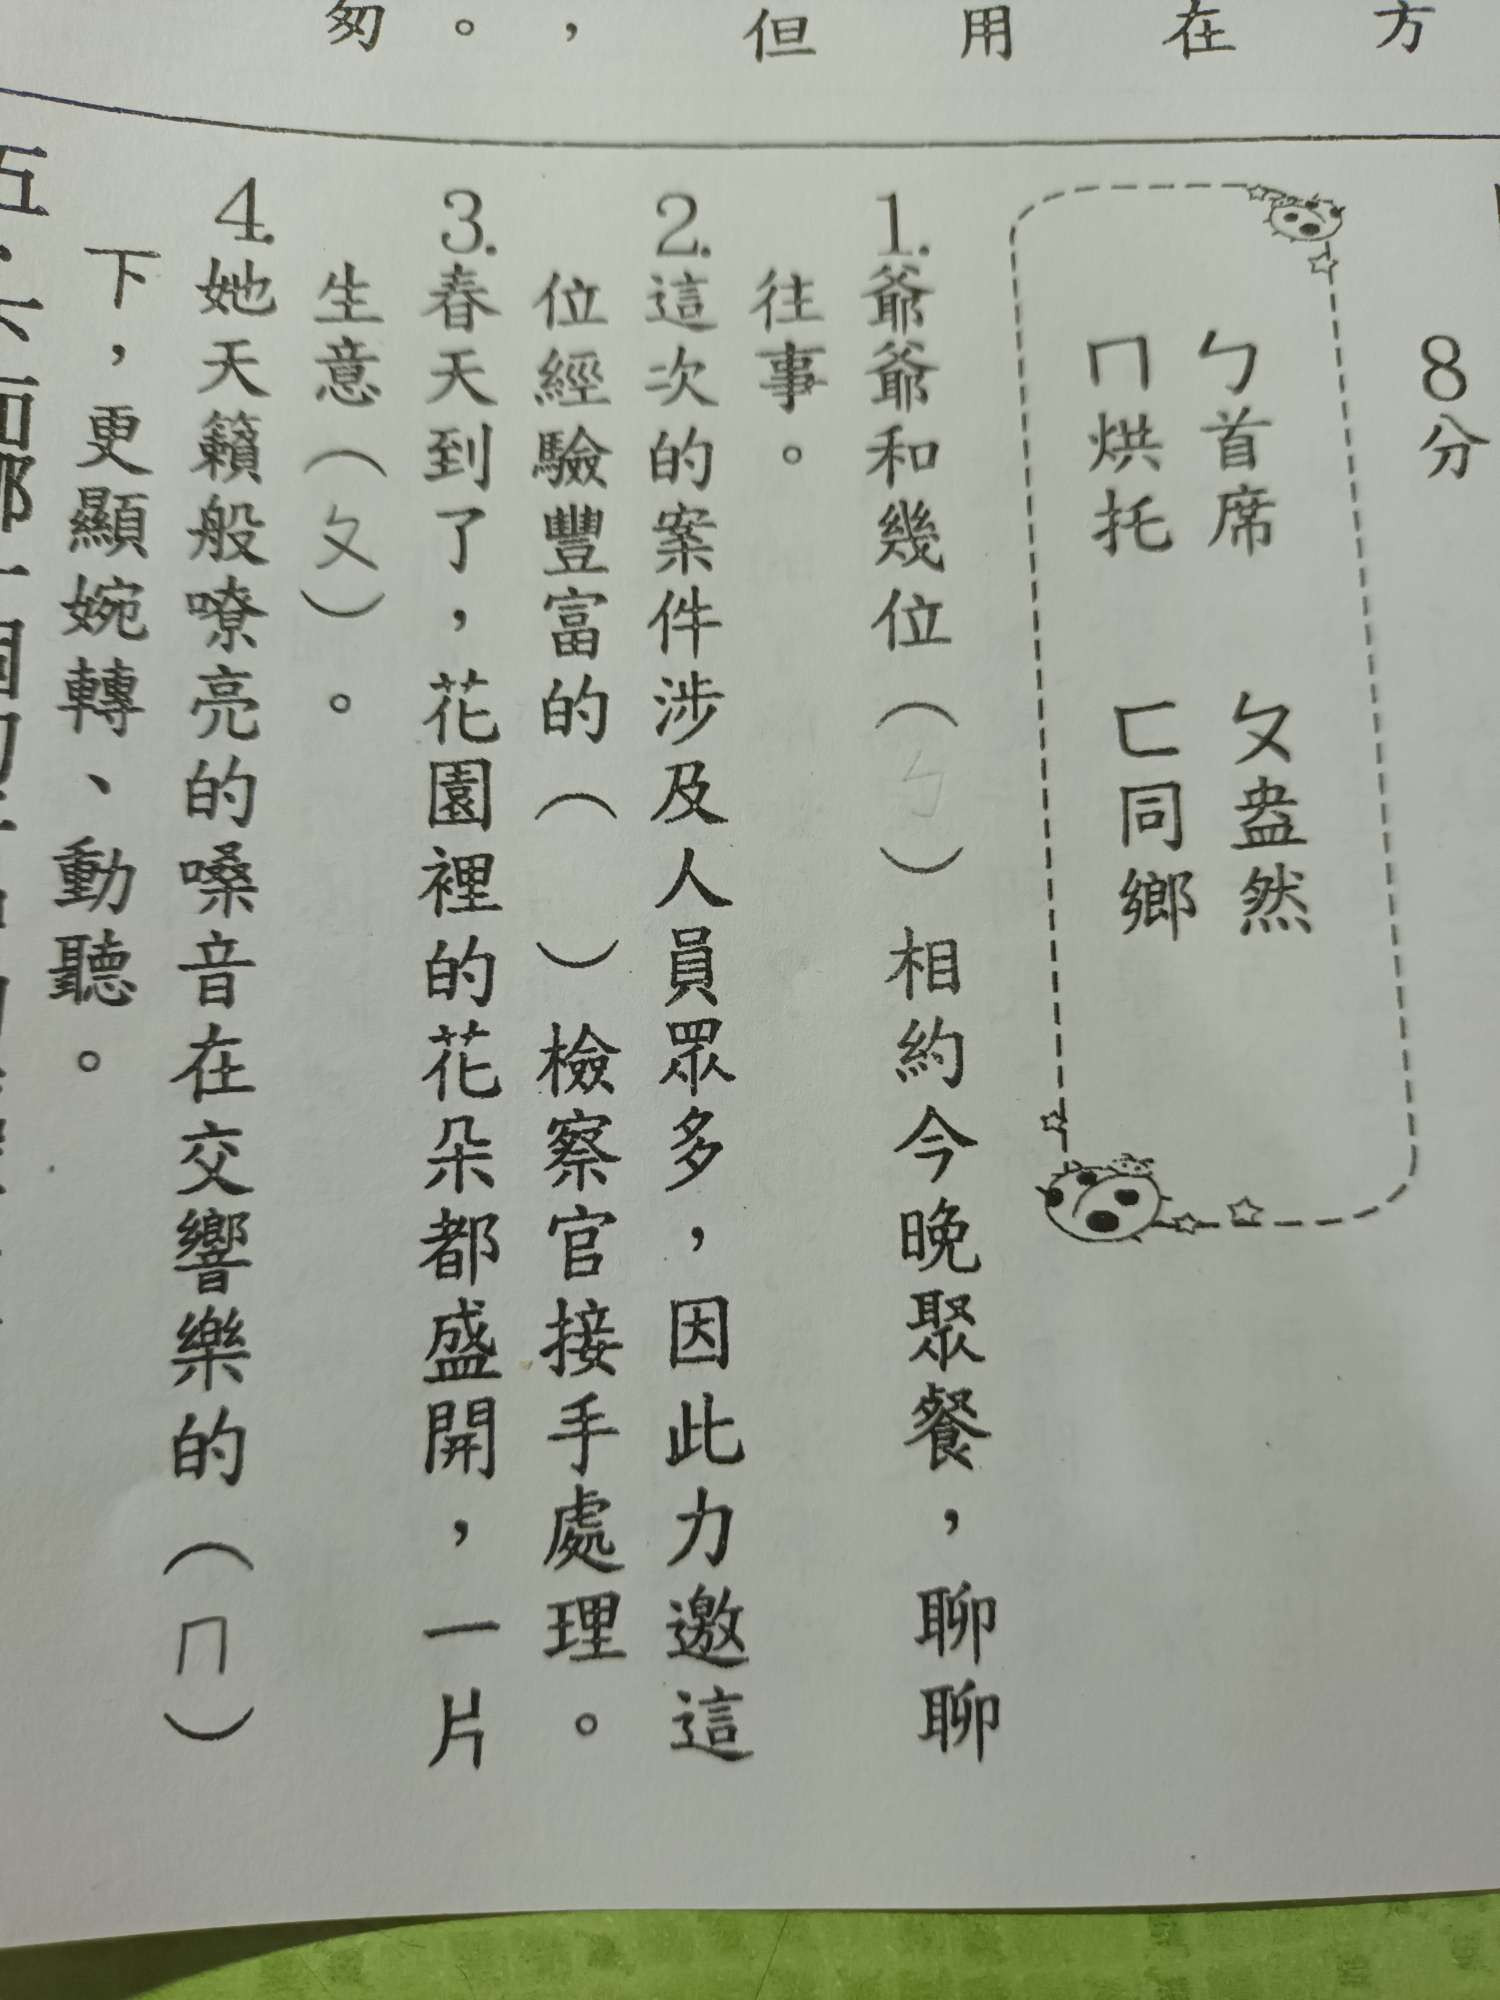 方在用但，。匆
8分
ㄅ首席　ㄆ盎然
ㄇ烘托　ㄈ同鄉
1.爺爺和幾位（ㄅ）相約今晚聚餐，聊聊
往事。
2.這次的案件涉及人員眾多，因此力邀這
位經驗豐富的（　）檢察官接手處理。
3.春天到了，花園裡的花朵都盛開，一片
生意（ㄆ）。
4.她天籟般嘹亮的嗓音在交響樂的（ㄇ）
下，更顯婉轉、動聽。